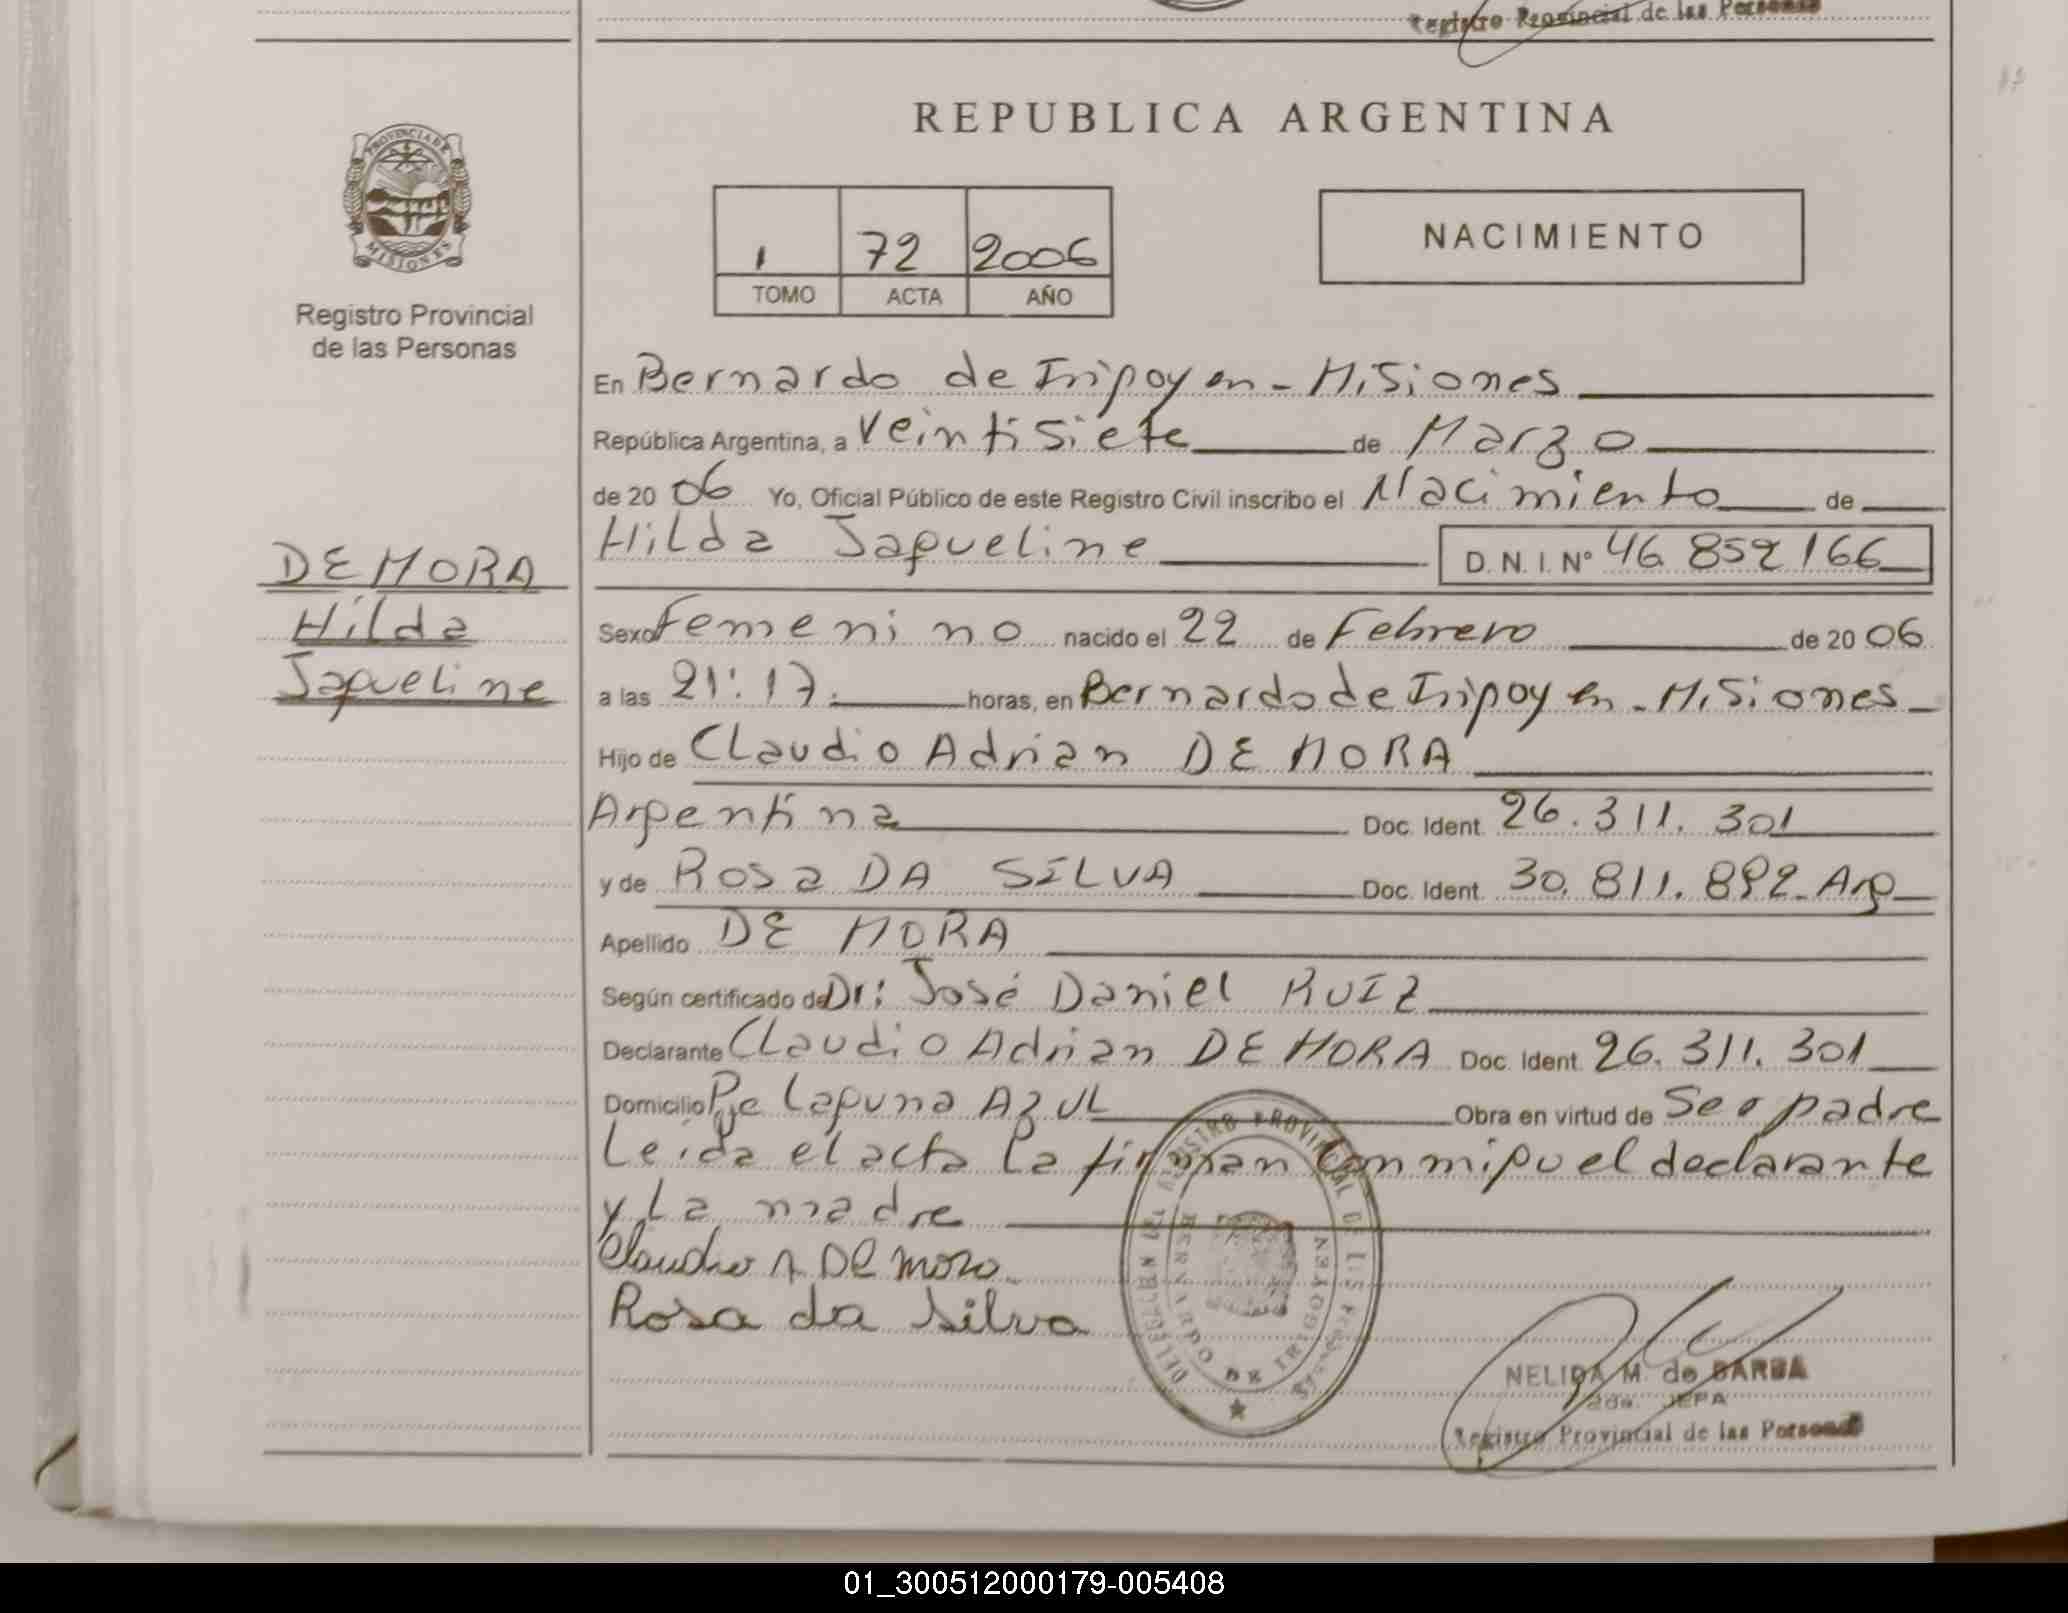 Registro Provincial de las Personas
REPUBLICA ARGENTINA
PROVINCIA DE
MISIONES
Registro Provincial
de las Personas
1 72 2006
TOMO ACTA AÑO
NACIMIENTO
DE MORA
Hilda
Jaqueline
En Bernardo de Irigoyen - Misiones
República Argentina, a Veintisiete de Marzo
de 20 06 Yo, Oficial Público de este Registro Civil inscribo el Nacimiento de
Hilda Jaqueline D. N. I. Nº 46 852 166
Sexo Femenino nacido el 22 de Febrero de 20 06
a las 21:17. horas, en Bernardo de Irigoyen - Misiones
Hijo de Claudio Adrian DE MORA
Argentina Doc. Ident. 26.311.301
y de Rosa DA SILVA Doc. Ident. 30.811.892 - Arg
Apellido DE MORA
Según certificado de Dr: José Daniel RUIZ
Declarante Claudio Adrian DE MORA Doc. Ident. 26.311.301
Domicilio Pje Laguna Azul Obra en virtud de Ser padre
Leida el acta la firman conmigo el declarante
y la madre
Claudio A De Mora
Rosa da Silva
REGISTRO PROVINCIAL DE LAS PERSONAS
BERNARDO DE IRIGOYEN
NELIDA M. de BARBA
2da. JEFA
Registro Provincial de las Personas
01_300512000179-005408